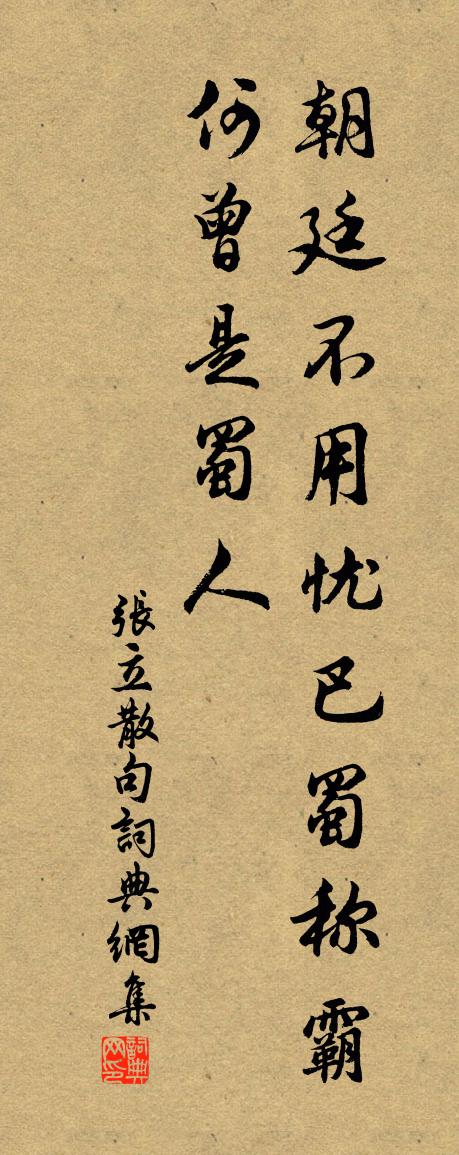 朝廷不用忧巴蜀称霸
何曾是蜀人
張立散句詞典網集
詞典网印